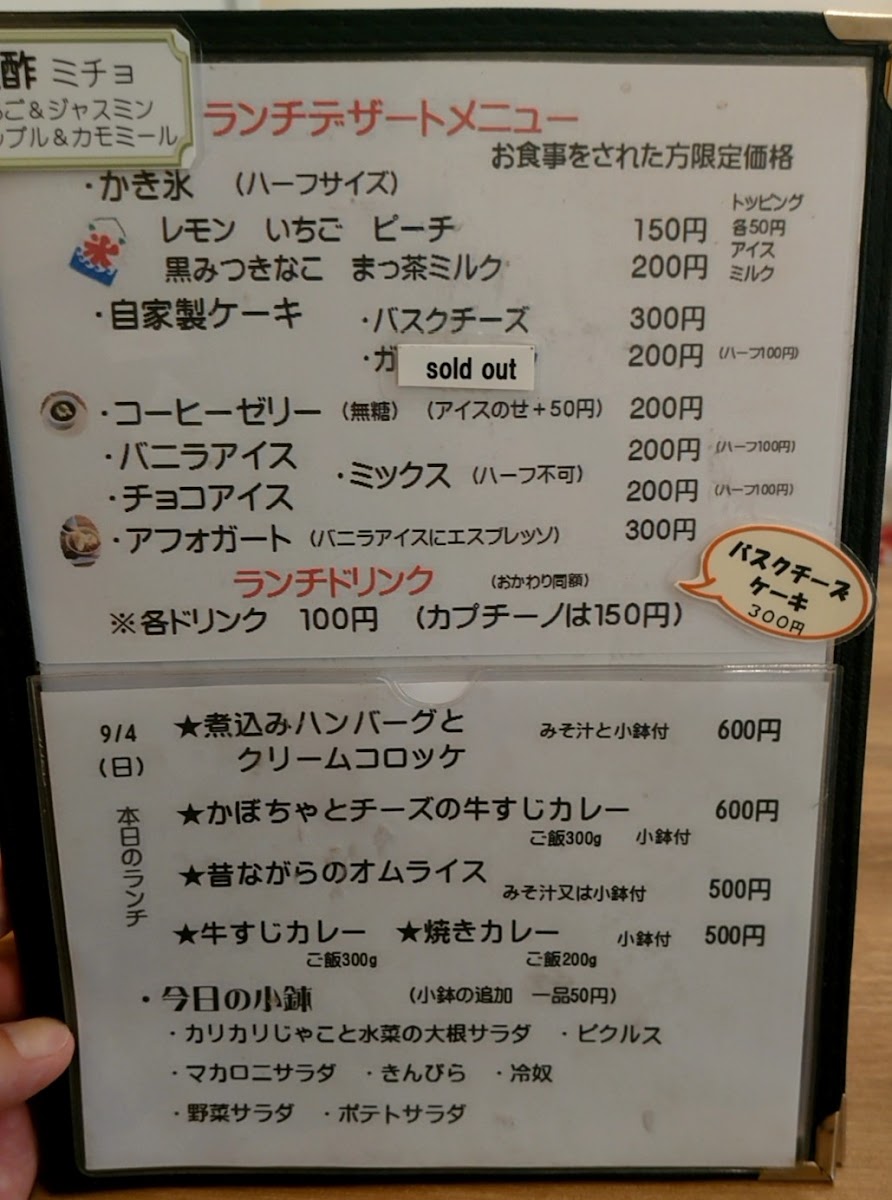 酢 ミチョ
ご＆ジャスミン
プル＆カモミール
ランチデザートメニュー
お食事をされた方限定価格
・かき氷 （ハーフサイズ）
トッピング
各50円
アイス
ミルク
氷
レモン いちご ピーチ 150円
黒みつきなこ まっ茶ミルク 200円
・自家製ケーキ ・バスクチーズ 300円
・ガ sold out 200円 （ハーフ100円）
・コーヒーゼリー （無糖） （アイスのせ＋50円） 200円
・バニラアイス 200円 （ハーフ100円）
・ミックス （ハーフ不可）
・チョコアイス 200円 （ハーフ100円）
・アフォガート （バニラアイスにエスプレッソ） 300円
バスクチーズ
ケーキ
300円
ランチドリンク （おかわり同額）
※各ドリンク 100円 （カプチーノは150円）
9/4
（日）
本日のランチ
★煮込みハンバーグと みそ汁と小鉢付 600円
クリームコロッケ
★かぼちゃとチーズの牛すじカレー 600円
ご飯300g 小鉢付
★昔ながらのオムライス みそ汁又は小鉢付 500円
★牛すじカレー ★焼きカレー 小鉢付 500円
ご飯300g ご飯200g
・今日の小鉢 （小鉢の追加 一品50円）
・カリカリじゃこと水菜の大根サラダ ・ピクルス
・マカロニサラダ ・きんぴら ・冷奴
・野菜サラダ ・ポテトサラダ